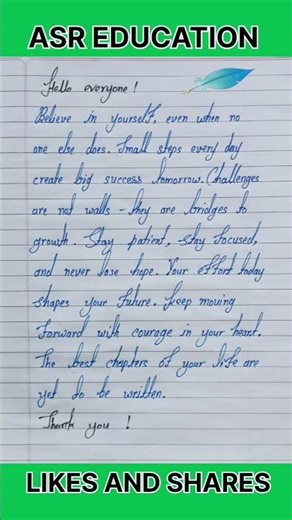 ASR EDUCATION
Hello everyone!
Believe in yourself, even when no
one else does. Small steps every day
create big success tomorrow. Challenges
are not walls - they are bridges to
growth. Stay patient, stay focused,
and never lose hope. Your effort today
shapes your future. Keep moving
forward with courage in your heart.
The best chapters of your life are
yet to be written.
Thank you!
LIKES AND SHARES